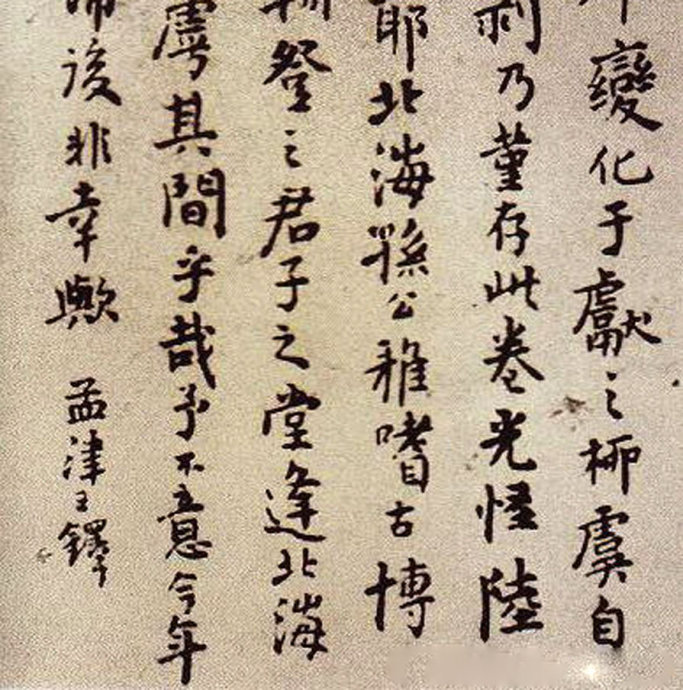 變化于獻之柳虞自
乃菫存此卷光怪陸
耶北海孫公雅嗜古博
登之君子之堂逢北海
其間乎哉予不意今年
後非幸歟 孟津王鐸